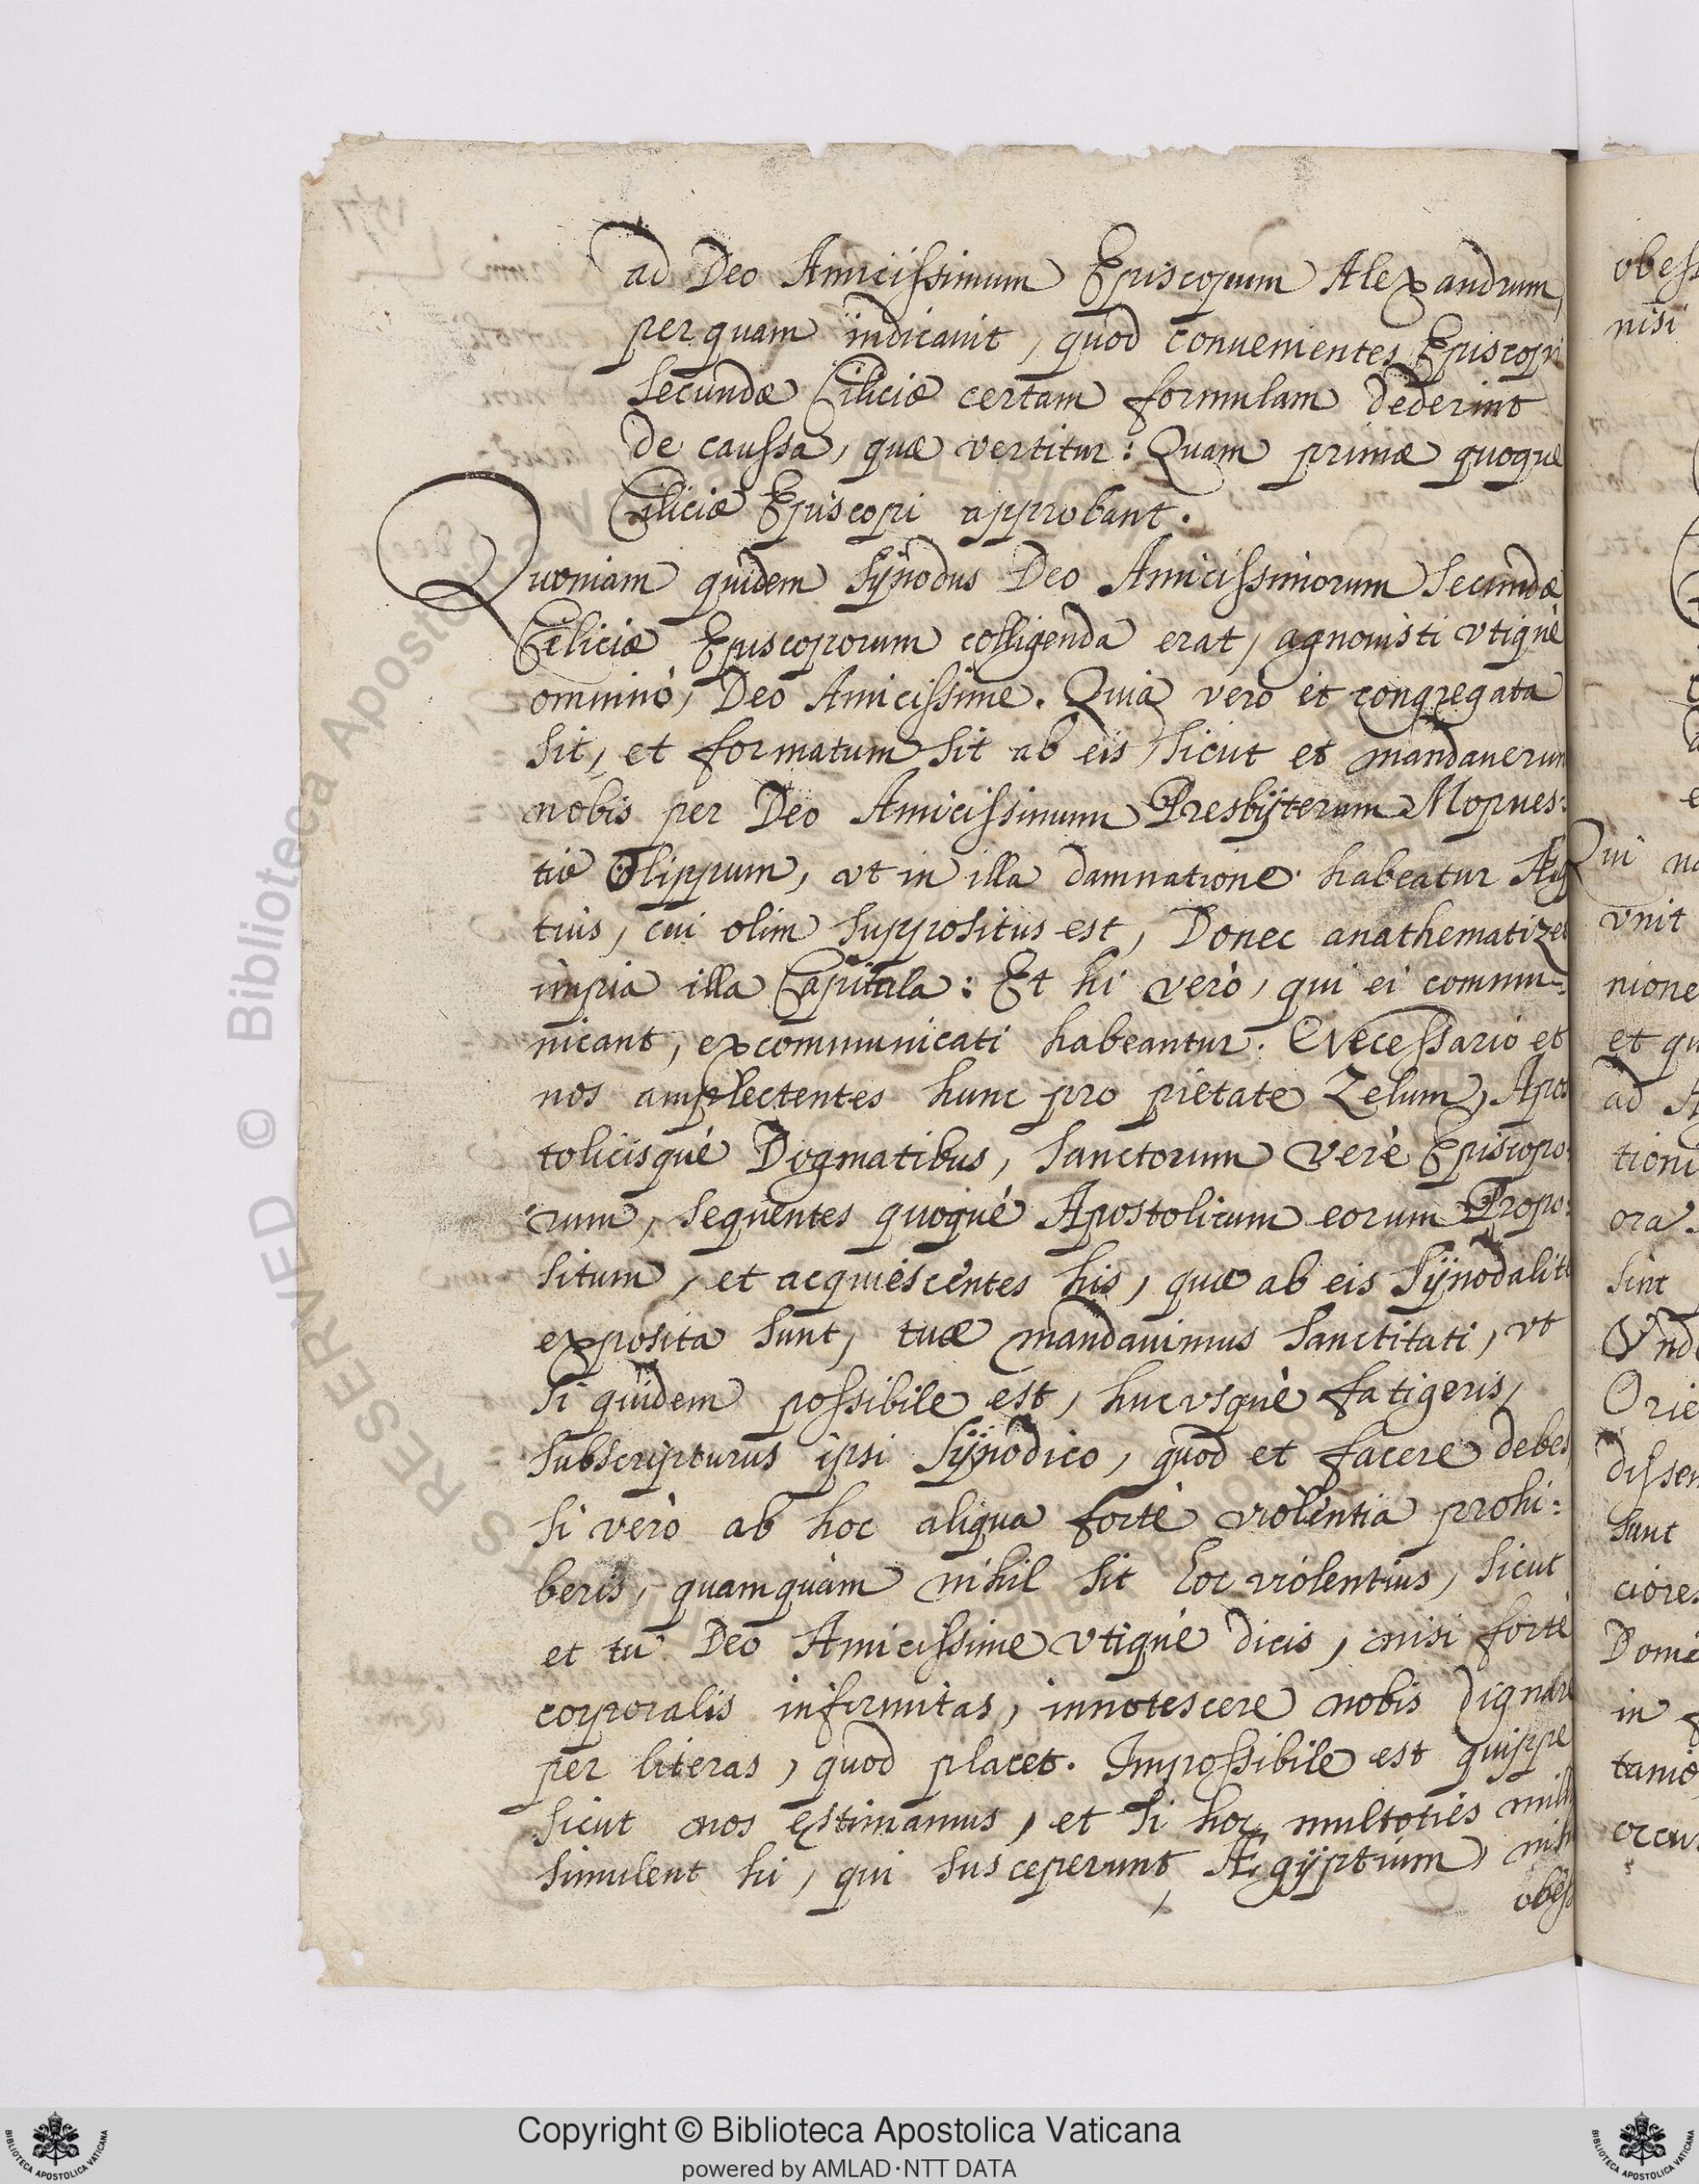 ad Deo Amicissimum Episcopum Alexandrum,
per quam indicauit, quod conuenientes Episcopi
secundæ Ciliciæ certam formulam dederint
de caussa, quæ vertitur: Quam primæ quoque
Ciliciæ Episcopi approbant.
Quoniam quidem Sÿnodus Deo Amicissimorum secundæ
Ciliciæ Episcoporum colligenda erat, agnouisti vtiquè
omninò, Deo Amicissime. Quia vero et congregata
sit, et formatum sit ab eis, sicut et mandauerun
nobis per Deo Amicissimum Presbÿterum Mopues:
tiæ Olippum, vt in illa damnatione habeatur
tius, cui olim suppositus est, Donec anathematizet
impia illa Capitula: Et hi verò, qui ei commu:
nicant, excommunicati habeantur. Necessariò et
nos amplectentes hunc pro pietate Zelum, Apos
tolicisquè Dogmatibus, sanctorum verè Episcopo:
rum, sequentes quoquè Apostolicum eorum Propo:
situm, et acquiescentes his, quæ ab eis Sÿnodalit
exposita sunt, tuæ mandauimus sanctitati, vt
si quidem possibile est, hucvsquè fatigeris,
subscripturus ipsi Sÿnodico, quod et facere debes,
si verò ab hoc aliqua fortè violentia prohi:
beris, quamquàm nihil sit hoc violentius, sicut
et tu Deo Amicissime vtiquè dicis, nisi fortè
corporalis infirmitas, innotescere nobis dignare
per literas, quod placet. Impossibile est quippe
sicut nos estimamus, et si hoc multoties
simulent hi, qui susceperunt Ægÿptium,
obess
obess
nisi
Qui
vnit
nione
et qu
ad A
tioni
ora.
sint
Vnde
Orie
dissen
sunt
ciores
Domi
in
tanio
occur
Copyright © Biblioteca Apostolica Vaticana
powered by AMLAD·NTT DATA